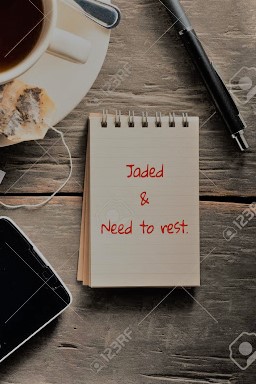 Jaded
&
Need to rest.
123RF
123RF
123RF
123RF